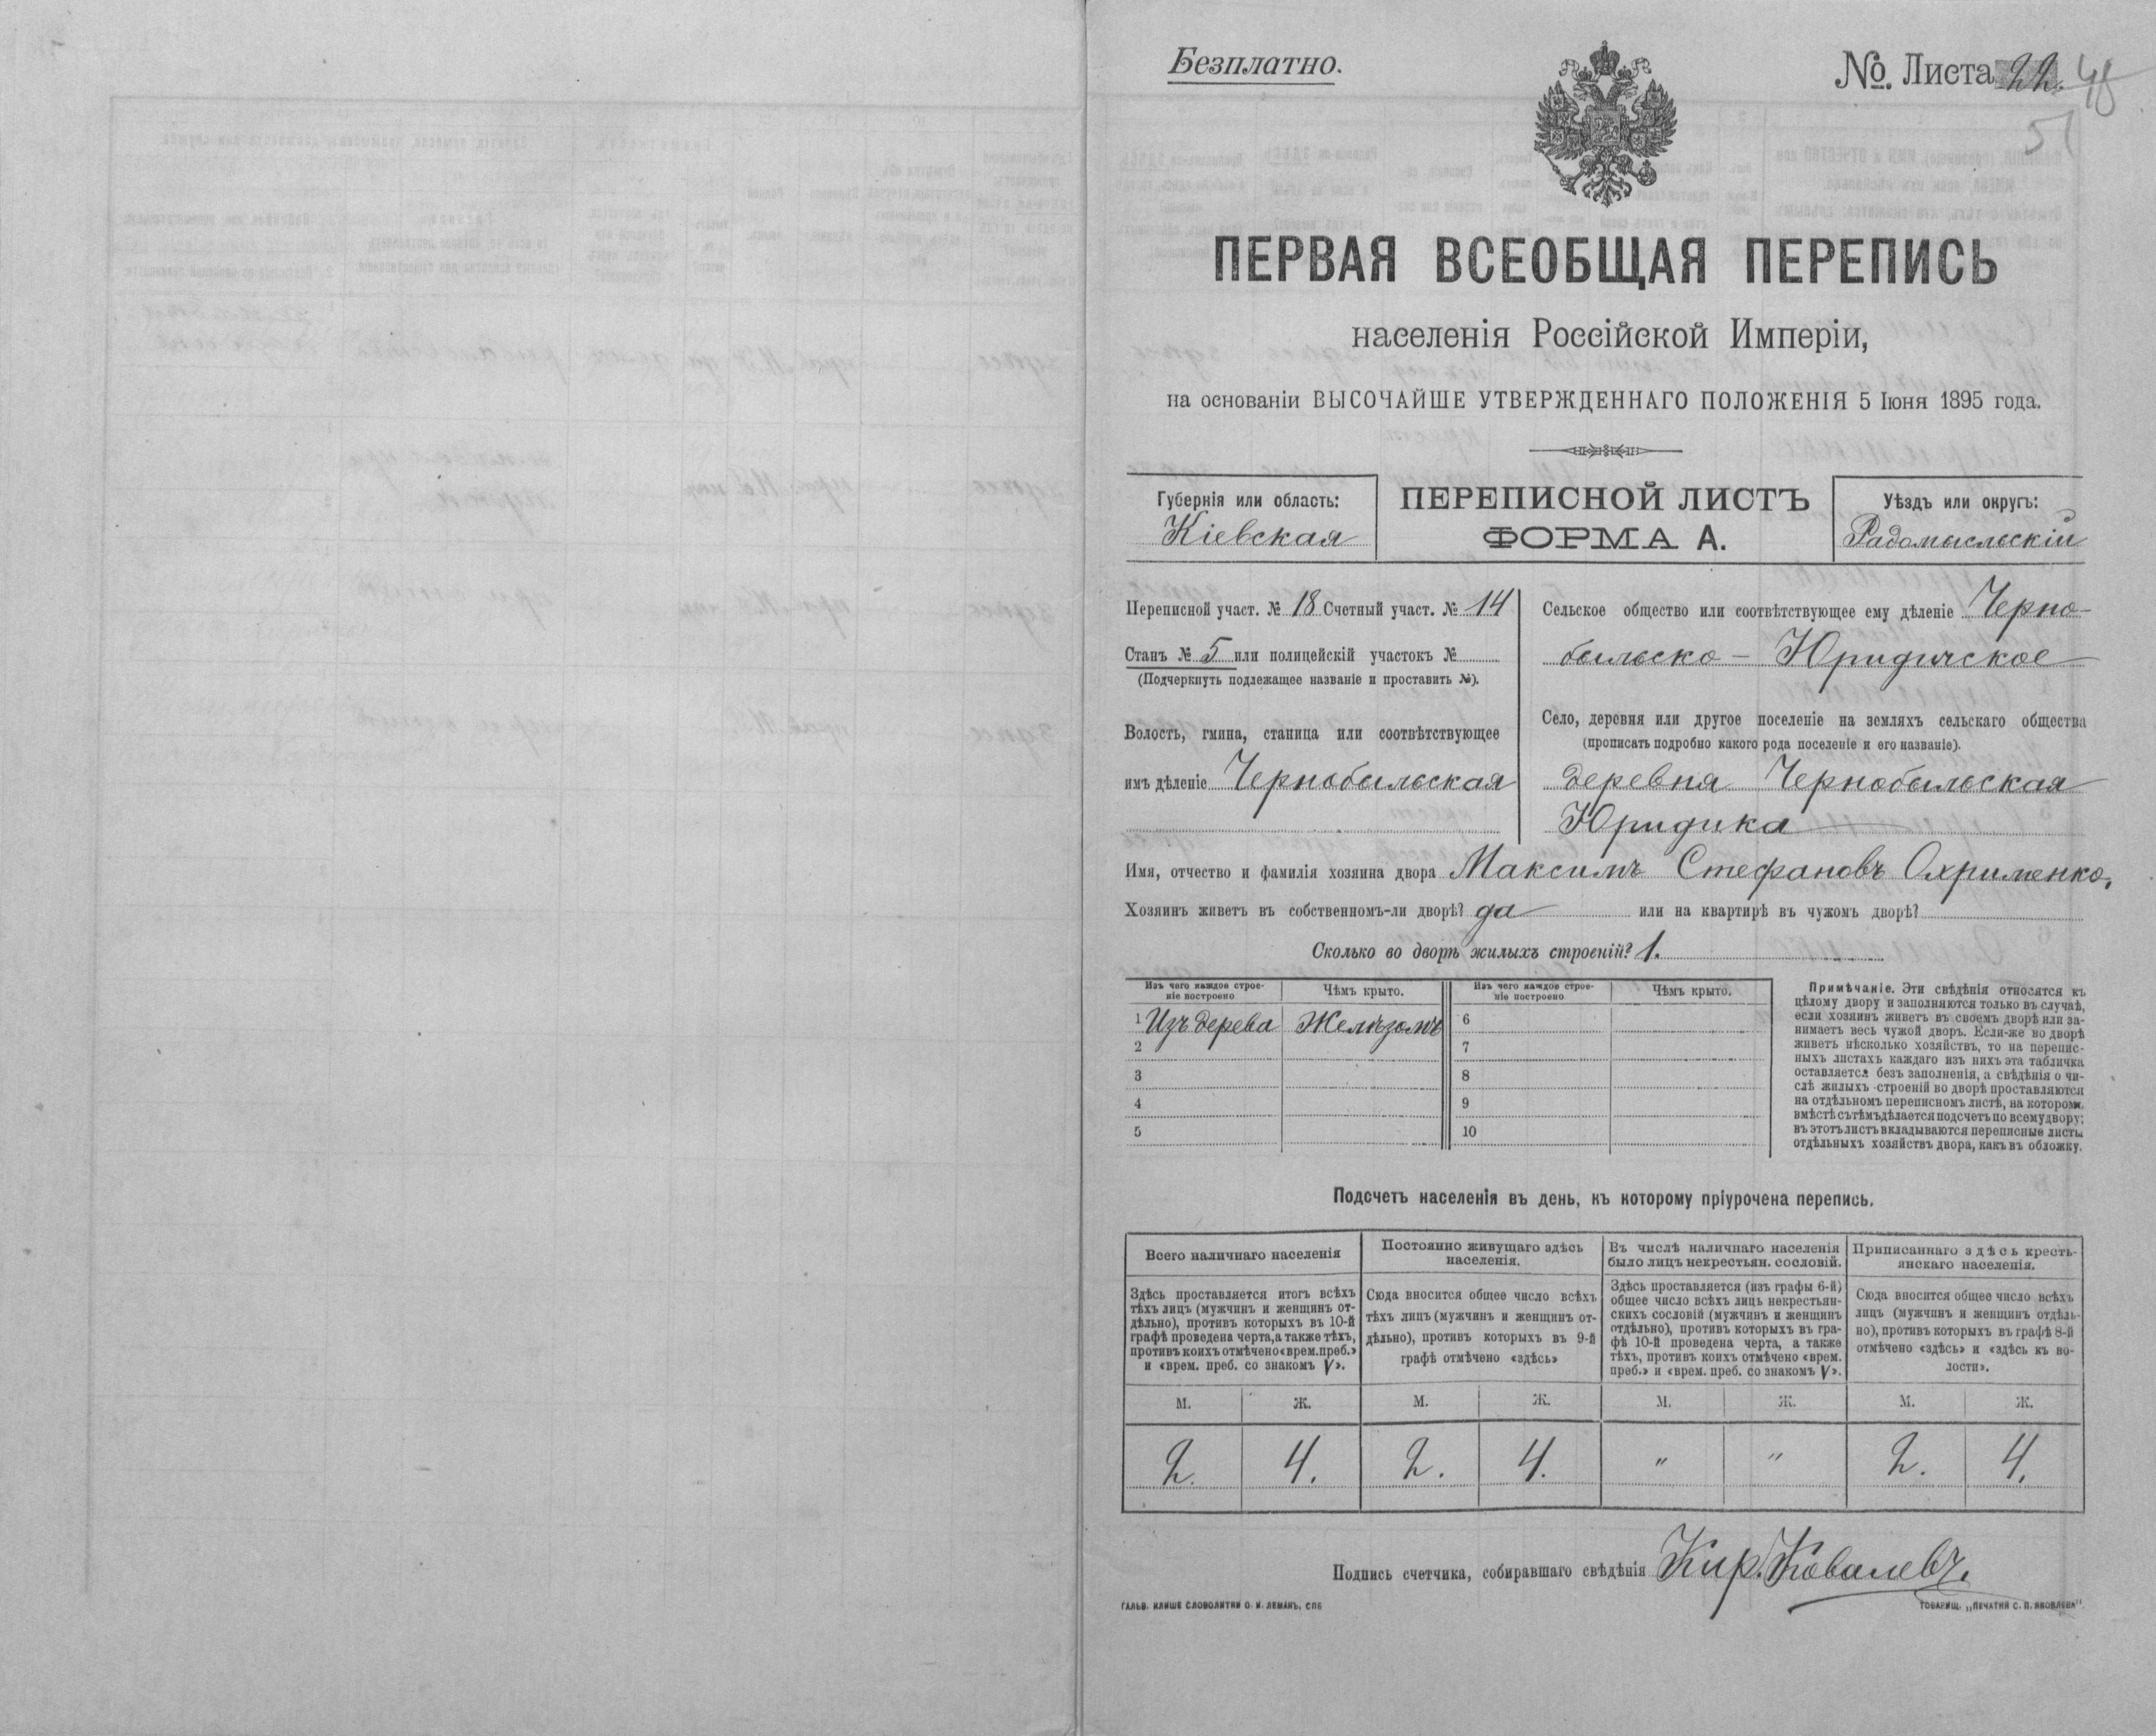 Безплатно.
№. Листа 22. 48
51
ПЕРВАЯ ВСЕОБЩАЯ ПЕРЕПИСЬ
населенія Россійской Имперіи,
на основаніи ВЫСОЧАЙШЕ УТВЕРЖДЕННАГО ПОЛОЖЕНІЯ 5 Іюня 1895 года.
Губернія или область:
Кіевская
ПЕРЕПИСНОЙ ЛИСТЪ
ФОРМА А.
Уѣздъ или округъ:
Радомысльскій
Переписной участ. № 18 Счетный участ. № 14
Станъ № 5 или полицейскій участокъ №
(Подчеркнуть подлежащее названіе и проставить №).
Волость, гмина, станица или соотвѣтствующее
имъ дѣленіе Чернобыльская
Сельское общество или соотвѣтствующее ему дѣленіе Черно-
быльско - Юридичское
Село, деревня или другое поселеніе на земляхъ сельскаго общества
(прописать подробно какого рода поселеніе и его названіе).
деревня Чернобыльская
Юридика
Имя, отчество и фамилія хозяина двора Максимъ Стефановъ Охрименко.
Хозяинъ живетъ въ собственномъ-ли дворѣ? да или на квартирѣ въ чужомъ дворѣ?
Сколько во дворѣ жилыхъ строеній? 1.
Изъ чего каждое строе-
ніе построено
Чѣмъ крыто.
Изъ чего каждое строе-
ніе построено
Чѣмъ крыто.
1 Изъ дерева Желѣзомъ 6
2 7
3 8
4 9
5 10
Примѣчаніе. Эти свѣдѣнія относятся къ
цѣлому двору и заполняются только въ случаѣ,
если хозяинъ живетъ въ своемъ дворѣ или за-
нимаетъ весь чужой дворъ. Если-же во дворѣ
живетъ нѣсколько хозяйствъ, то на перепис-
ныхъ листахъ каждаго изъ нихъ эта табличка
оставляется безъ заполненія, а свѣдѣнія о чи-
слѣ жилыхъ строеній во дворѣ проставляются
на отдѣльномъ переписномъ листѣ, на которомъ
вмѣстѣ съ тѣмъ дѣлается подсчетъ по всему двору;
въ этотъ листъ вкладываются переписные листы
отдѣльныхъ хозяйствъ двора, какъ въ обложку.
Подсчетъ населенія въ день, къ которому пріурочена перепись.
Всего наличнаго населенія
Здѣсь проставляется итогъ всѣхъ
тѣхъ лицъ (мужчинъ и женщинъ от-
дѣльно), противъ которыхъ въ 10-й
графѣ проведена черта, а также тѣхъ,
противъ коихъ отмѣчено «врем. преб.»
и «врем. преб. со знакомъ V».
Постоянно живущаго здѣсь
населенія.
Сюда вносится общее число всѣхъ
тѣхъ лицъ (мужчинъ и женщинъ от-
дѣльно), противъ которыхъ въ 9-й
графѣ отмѣчено «здѣсь»
Въ числѣ наличнаго населенія
было лицъ некрестьян. сословій.
Здѣсь проставляется (изъ графы 6-й)
общее число всѣхъ лицъ некрестьян-
скихъ сословій (мужчинъ и женщинъ
отдѣльно), противъ которыхъ въ гра-
фѣ 10-й проведена черта, а также
тѣхъ, противъ коихъ отмѣчено «врем.
преб.» и «врем. преб. со знакомъ V».
Приписаннаго здѣсь кресть-
янскаго населенія.
Сюда вносится общее число всѣхъ
лицъ (мужчинъ и женщинъ отдѣль-
но), противъ которыхъ въ графѣ 8-й
отмѣчено «здѣсь» и «здѣсь къ во-
лости».
М. Ж. М. Ж. М. Ж. М. Ж.
2. 4. 2. 4. " " 2. 4.
Подпись счетчика, собиравшаго свѣдѣнія Кир. Ковалевъ.
ГАЛЬВ. КЛИШЕ СЛОВОЛИТНИ О. И. ЛЕМАНЪ, СПБ
ТОВАРИЩ. „ПЕЧАТНЯ С. П. ЯКОВЛЕВА".